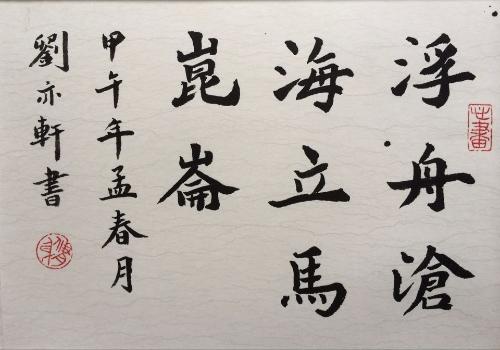 浮舟滄
海立馬
崑崙
甲午年孟春月
劉亦軒書